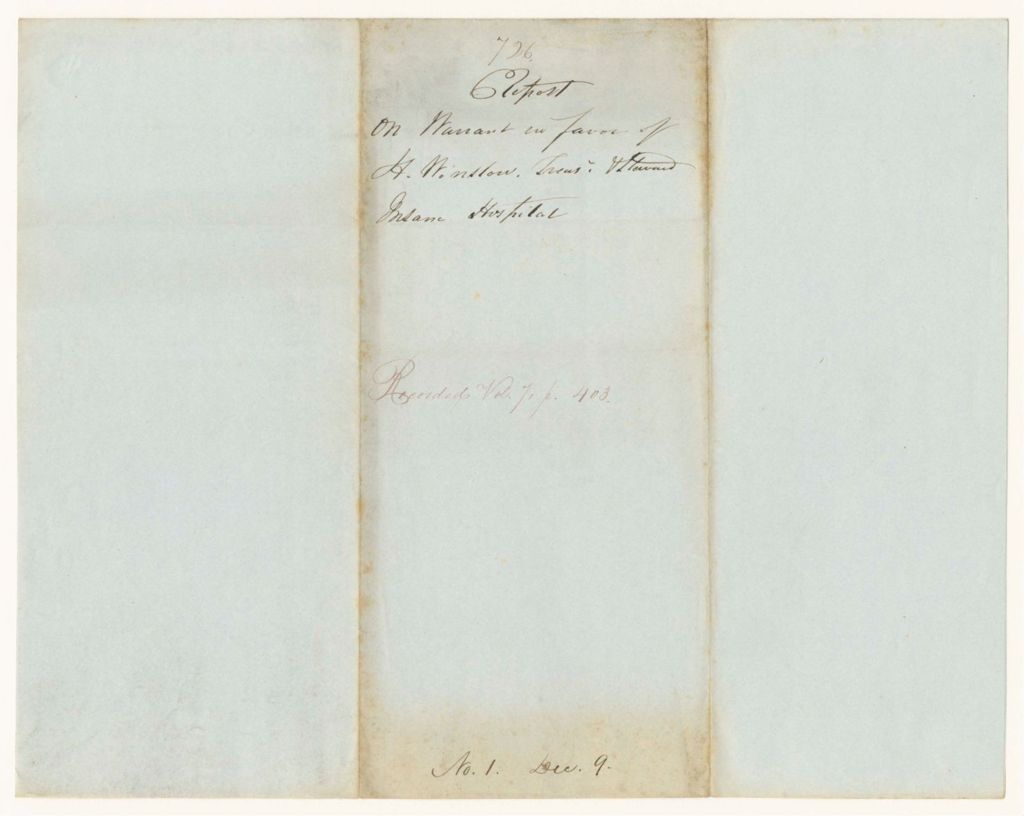 726.
Report
On Warrant in favor of
H. Winslow. Treasr. & Steward
Insane Hospital
Recorded Vol. 7. p. 403.
No. 1. Dec. 9.